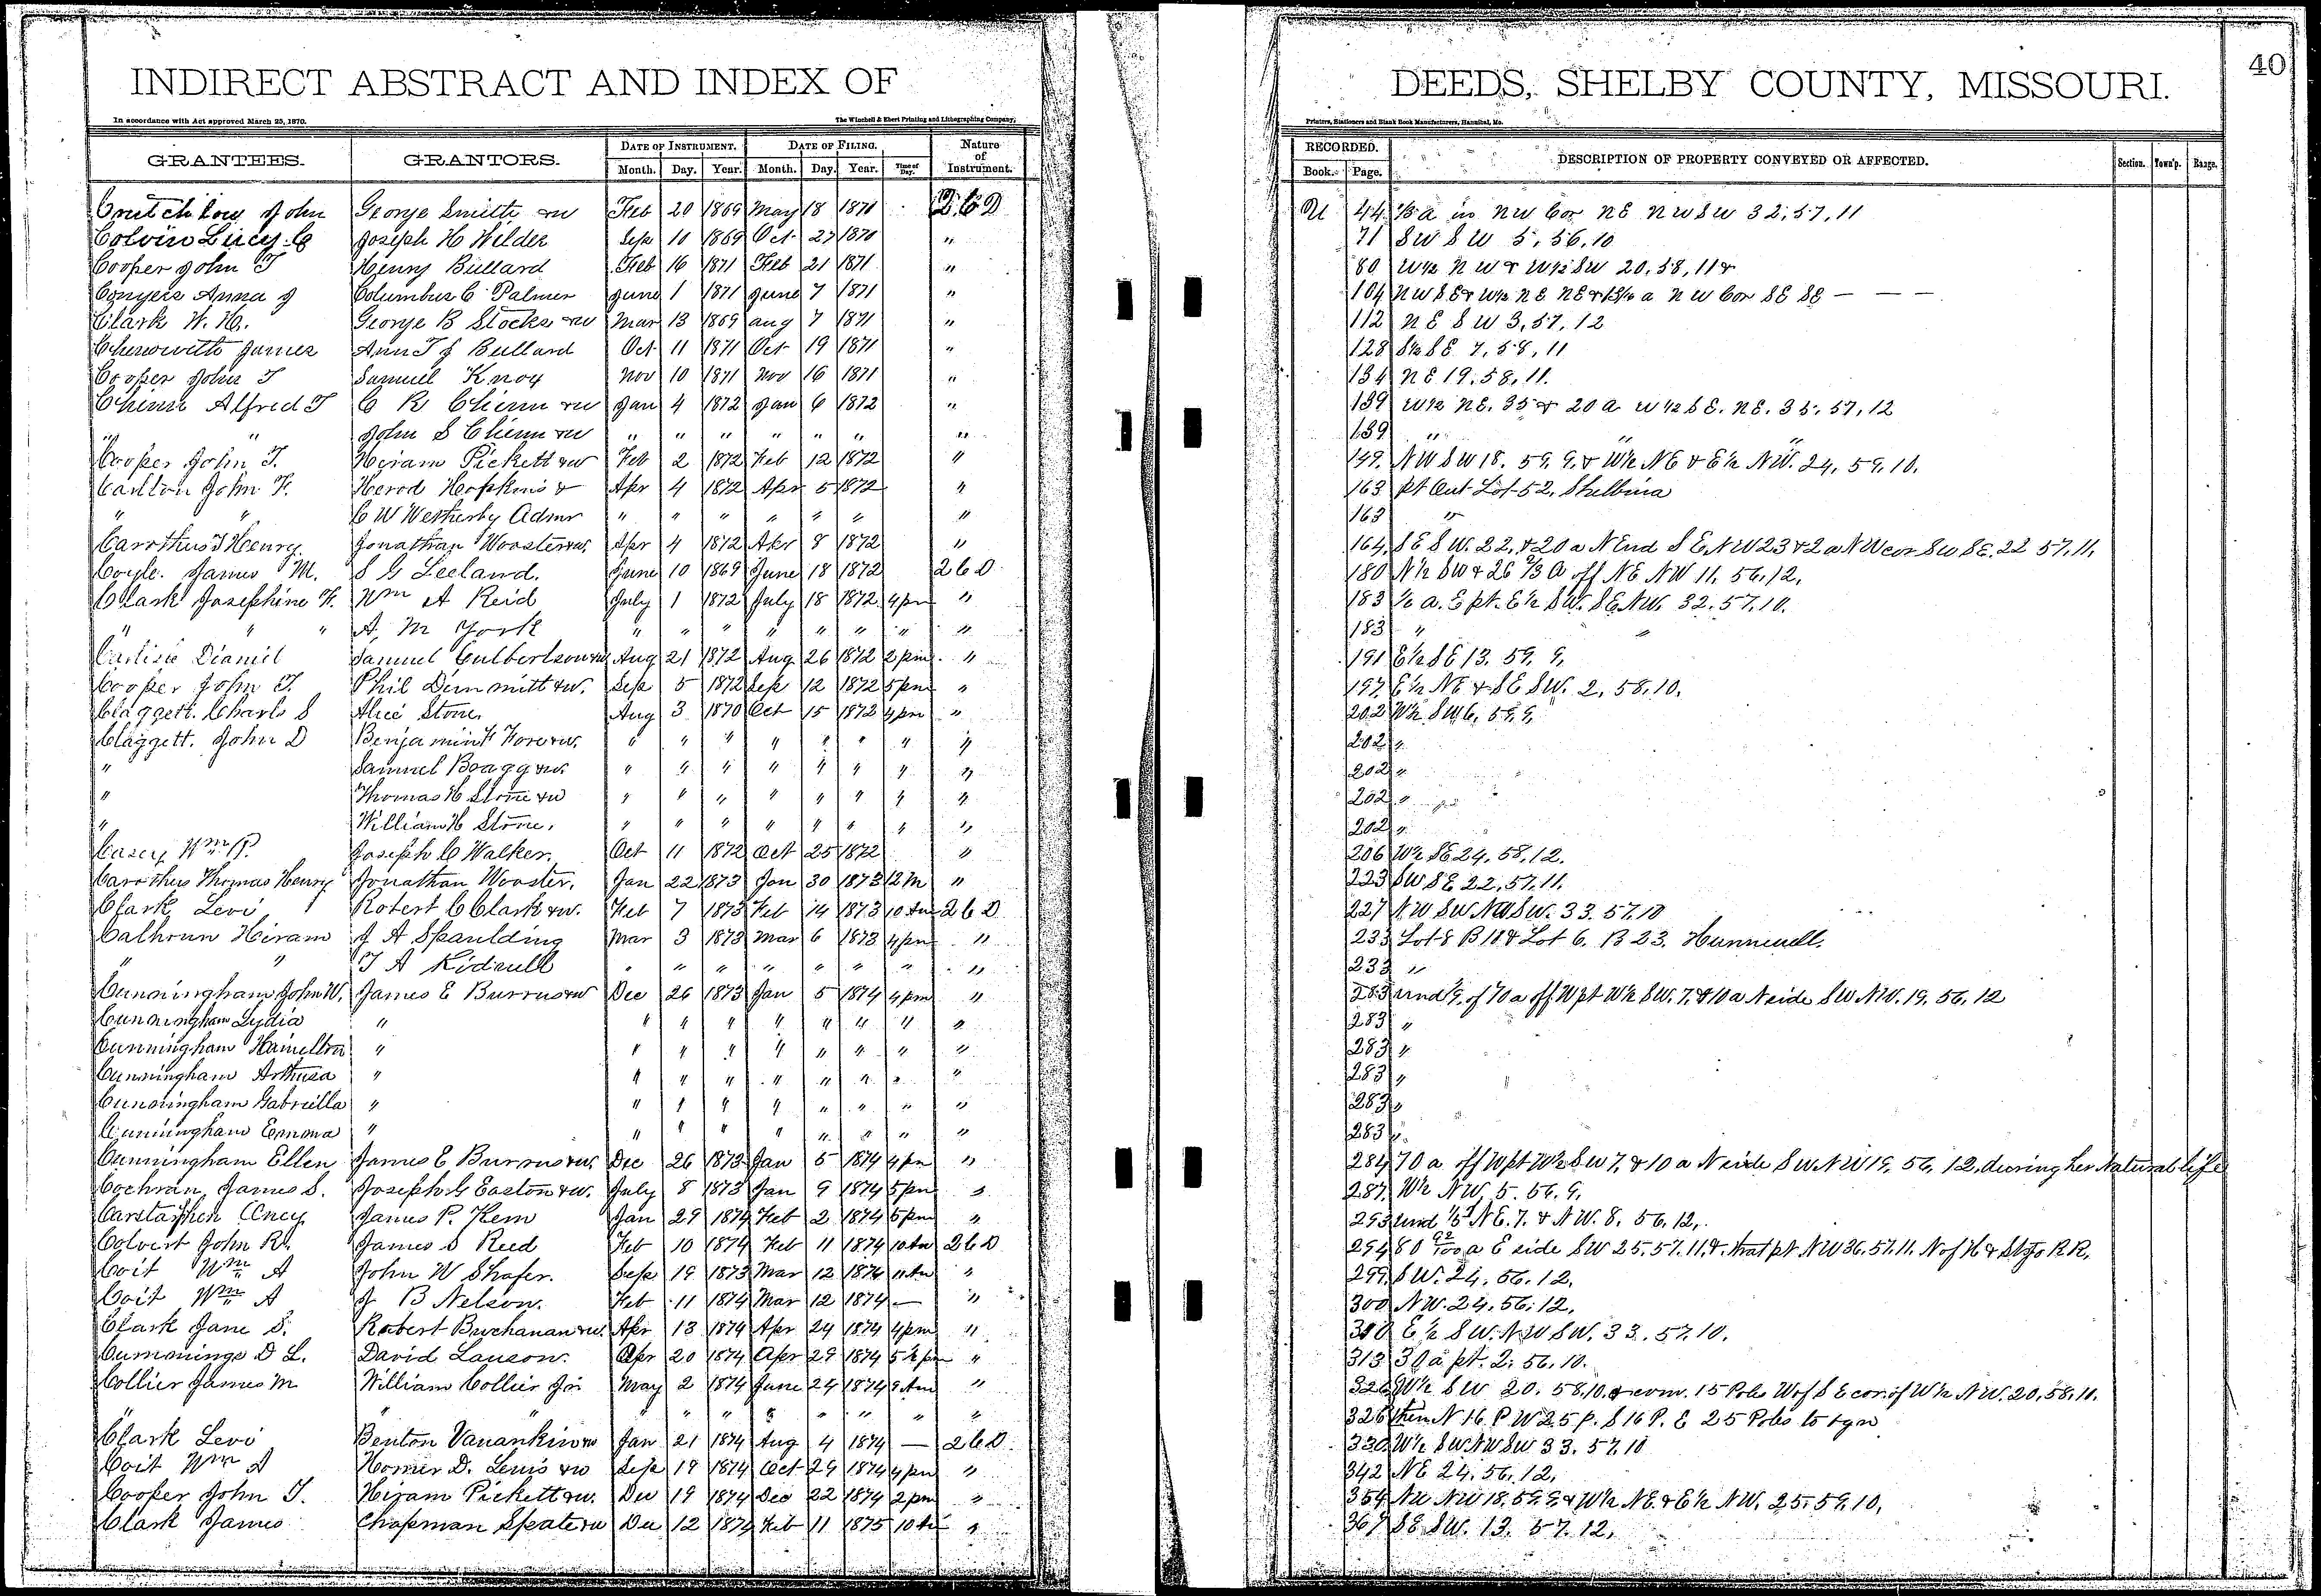 INDIRECT ABSTRACT AND INDEX OF DEEDS, SHELBY COUNTY, MISSOURI. 40
In accordance with Act approved March 25, 1870. The Winchell & Ebert Printing and Lithographing Company, Printers, Stationers and Blank Book Manufacturers, Hannibal, Mo.
GRANTEES. GRANTORS. DATE OF INSTRUMENT. DATE OF FILING. Nature of Instrument. RECORDED. DESCRIPTION OF PROPERTY CONVEYED OR AFFECTED. Section. Town'p. Range.
Month. Day. Year. Month. Day. Year. Time of Day. Book. Page.
Crutchlow John George Smith &w Feb 20 1869 May 18 1871 2 C D U 44 1/3 a in NW Cor NE NW SW 32, 57, 11
Colvin Lucy C Joseph H Wilder Sep 10 1869 Oct 27 1870 " 71 SW SW 5, 56, 10
Cooper John T Henry Bullard Feb 16 1871 Feb 21 1871 " 80 W½ NW & W½ SW 20, 58, 11 &
Conyers Anna J Columbus C Palmer June 1 1871 June 7 1871 " 104 NW SE & W½ NE NE & a NW Cor SE SE — — —
Clark W. H. George B Stocks &w Mar 13 1869 Aug 7 1871 " 112 NE SW 3, 57, 12
Chenowith James Ann T J Bullard Oct 11 1871 Oct 19 1871 " 128 S½ SE 7, 58, 11
Cooper John T Samuel Knox Nov 10 1871 Nov 16 1871 " 134 NE 19, 58, 11.
Chinn Alfred T C R Chinn &w Jan 4 1872 Jan 6 1872 " 139 W½ NE. 35 & 20 a W½ SE. NE. 35, 57, 12
" " John S Chinn &w " " " " " " " 139 " " "
Cooper John T. Hiram Pickett &w Feb 2 1872 Feb 12 1872 " 149. NW SW 18. 59. 9. & W½ NE & E½ NW. 24, 59, 10.
Carlton John F. Herod Hopkins & Apr 4 1872 Apr 5 1872 " 163 pt Out Lot 52, Shelbina
" " C W Wetherby Admr " " " " " " " 163 "
Carothus T Henry. Jonathan Wooster &w. Apr 4 1872 Apr 8 1872 " 164 SE SW. 22, & 20 a N End SE, NW 23 & 2 a NW cor SW SE. 22 57, 11,
Coyle. James M. S G Leeland. June 10 1869 June 18 1872 2 C D 180 N½ SW & 26 2/3 a off NE NW 11, 56, 12,
Clark Josephine F. Wm A Reid July 1 1872 July 18 1872 4 pm " 183 ½ a. E pt. E½ SW. SE NW. 32. 57, 10.
" " " A, M York " " " " " " " " 183 " "
Carlisle Daniel Samuel Culbertson &w Aug 21 1872 Aug 26 1872 2 pm " 191 E½ SE 13, 59, 9,
Cooper John T. Phil Dimmitt &w. Sep 5 1872 Sep 12 1872 5 pm " 197. E½ NE & SE SW. 2, 58, 10.
Claggett. Charls S Alice Stone. Aug 3 1870 Oct 15 1872 4 pm " 202 W½ SW 6, 59, 9,
Claggett. John D Benjamin F Fore &w. " " " " " " " " 202 "
" Samuel Boagg &w. " " " " " " " " 202 "
" Thomas H Stone &w " " " " " " " " 202 "
" William H Stone, " " " " " " " " 202 "
Casey Wm P. Joseph C Walker. Oct 11 1872 Oct 25 1872 " 206 W½ SE 24, 58, 12.
Carothus Thomas Henry Jonathan Wooster, Jan 22 1873 Jan 30 1873 12 M " 223 SW SE 22, 57, 11.
Clark Levi Robert C Clark &w. Feb 7 1873 Feb 14 1873 10 Am 2 C D 227 NW SW NW SW. 33. 57. 10
Calhoun Hiram J A Spaulding Mar 3 1873 Mar 6 1873 4 pm " 233 Lot 8 B 11 & Lot 6. B 23. Hunnewell.
" " T A Kidwell " " " " " " " " 233 "
Cunningham John W. James E Burrus &w Dec 26 1873 Jan 5 1874 4 pm " 283 und of 70 a off W pt W½ SW. 7, & 10 a N side SW NW. 19, 56, 12
Cunningham Lydia " " " " " " " " " 283 "
Cunningham Hamilton " " " " " " " " " 283 "
Cunningham Arthusa " " " " " " " " " 283 "
Cunningham Gabrielle " " " " " " " " " 283 "
Cunningham Emma " " " " " " " " " 283 "
Cunningham Ellen James E Burrus &w, Dec 26 1873 Jan 5 1874 4 pm " 284 70 a off W pt W½ SW 7, & 10 a N side SW NW 19, 56, 12, during her Natural life
Cochran James S. Joseph G Easton &w. July 8 1873 Jan 9 1874 5 pm " 287. W½ NW, 5. 56. 9,
Carstaphen Oney James P. Kern Jan 29 1874 Feb 2 1874 5 pm " 293 und 1/5 NE. 7. & NW. 8, 56, 12,
Colvert John R. James S Reed Feb 10 1874 Feb 11 1874 10 Am 2 C D 294 80 92/100 a E side SW 25, 57, 11, & that pt NW 36, 57, 11, N of H & St Jo RR,
Coit Wm A John W Shafer. Sep 19 1873 Mar 12 1874 11 Am " 299 SW. 24, 56, 12.
Coit Wm A J B Nelson. Feb 11 1874 Mar 12 1874 — " 300 NW. 24, 56, 12,
Clark Jane S. Robert Buchanan &w. Apr 13 1874 Apr 24 1874 4 pm " 310 E½ SW. NW SW. 33, 57, 10.
Cummings D L. David Lauson. Apr 20 1874 Apr 29 1874 5½ pm " 313 30 a pt. 2, 56, 10.
Collier James M William Collier Jr May 2 1874 June 24 1874 9 Am " 326 W½ SW 20, 58, 10, & com. 15 Poles W of SE cor. of W½ NW. 20, 58, 10.
" " " " " " " " " " 326 then N 16 P W 25 p. S 16 P. E 25 Poles to bgn
Clark Levi Benton Vanankin &w Jan 21 1874 Aug 4 1874 — 2 C D 330 W½ SW NW SW 33, 57, 10
Coit Wm A Homer D. Lewis &w Sep 19 1874 Oct 29 1874 4 pm " 342 NE 24, 56, 12,
Cooper John T. Hiram Pickett &w. Dec 19 1874 Dec 22 1874 2 pm " 354 NW NW 18, 59, 9, & W½ NE. & E½ NW, 25, 59, 10,
Clark James Chapman Speate &w Dec 12 1874 Feb 11 1875 10 Am " 367 SE SW. 13, 57, 12,